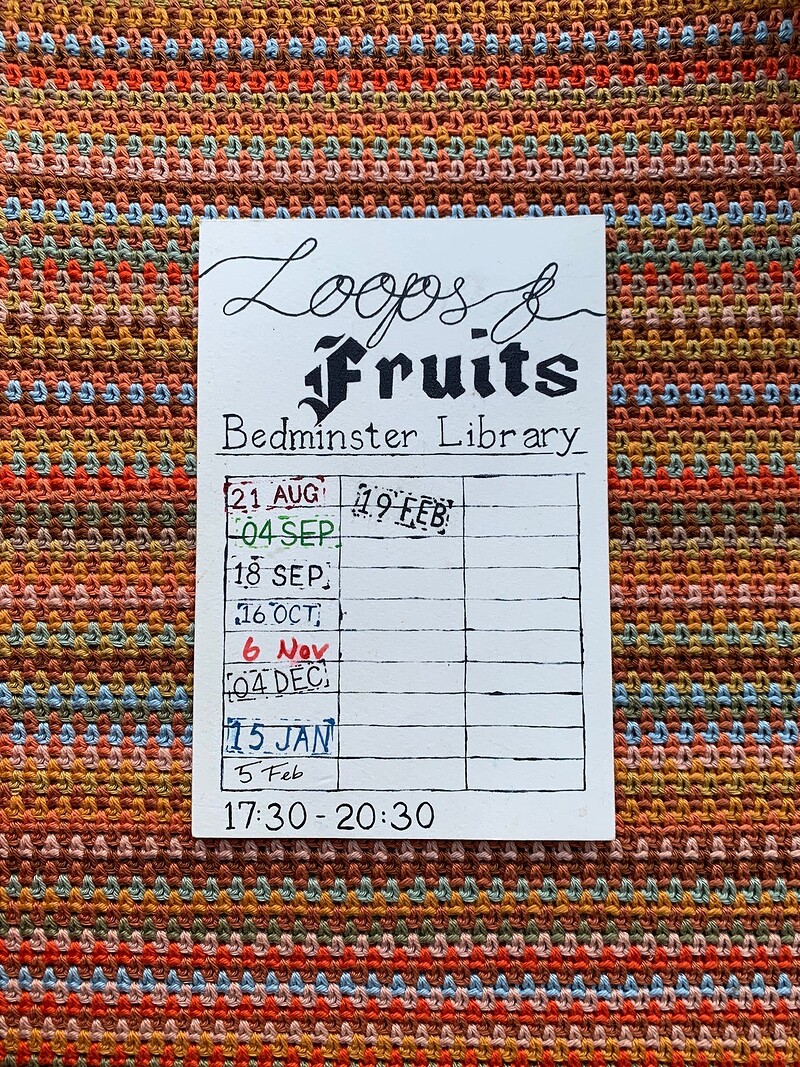 Loops &
Fruits
Bedminster Library
21 AUG
04 SEP
18 SEP
16 OCT
6 Nov
04 DEC
15 JAN
5 Feb
19 FEB
17:30 - 20:30